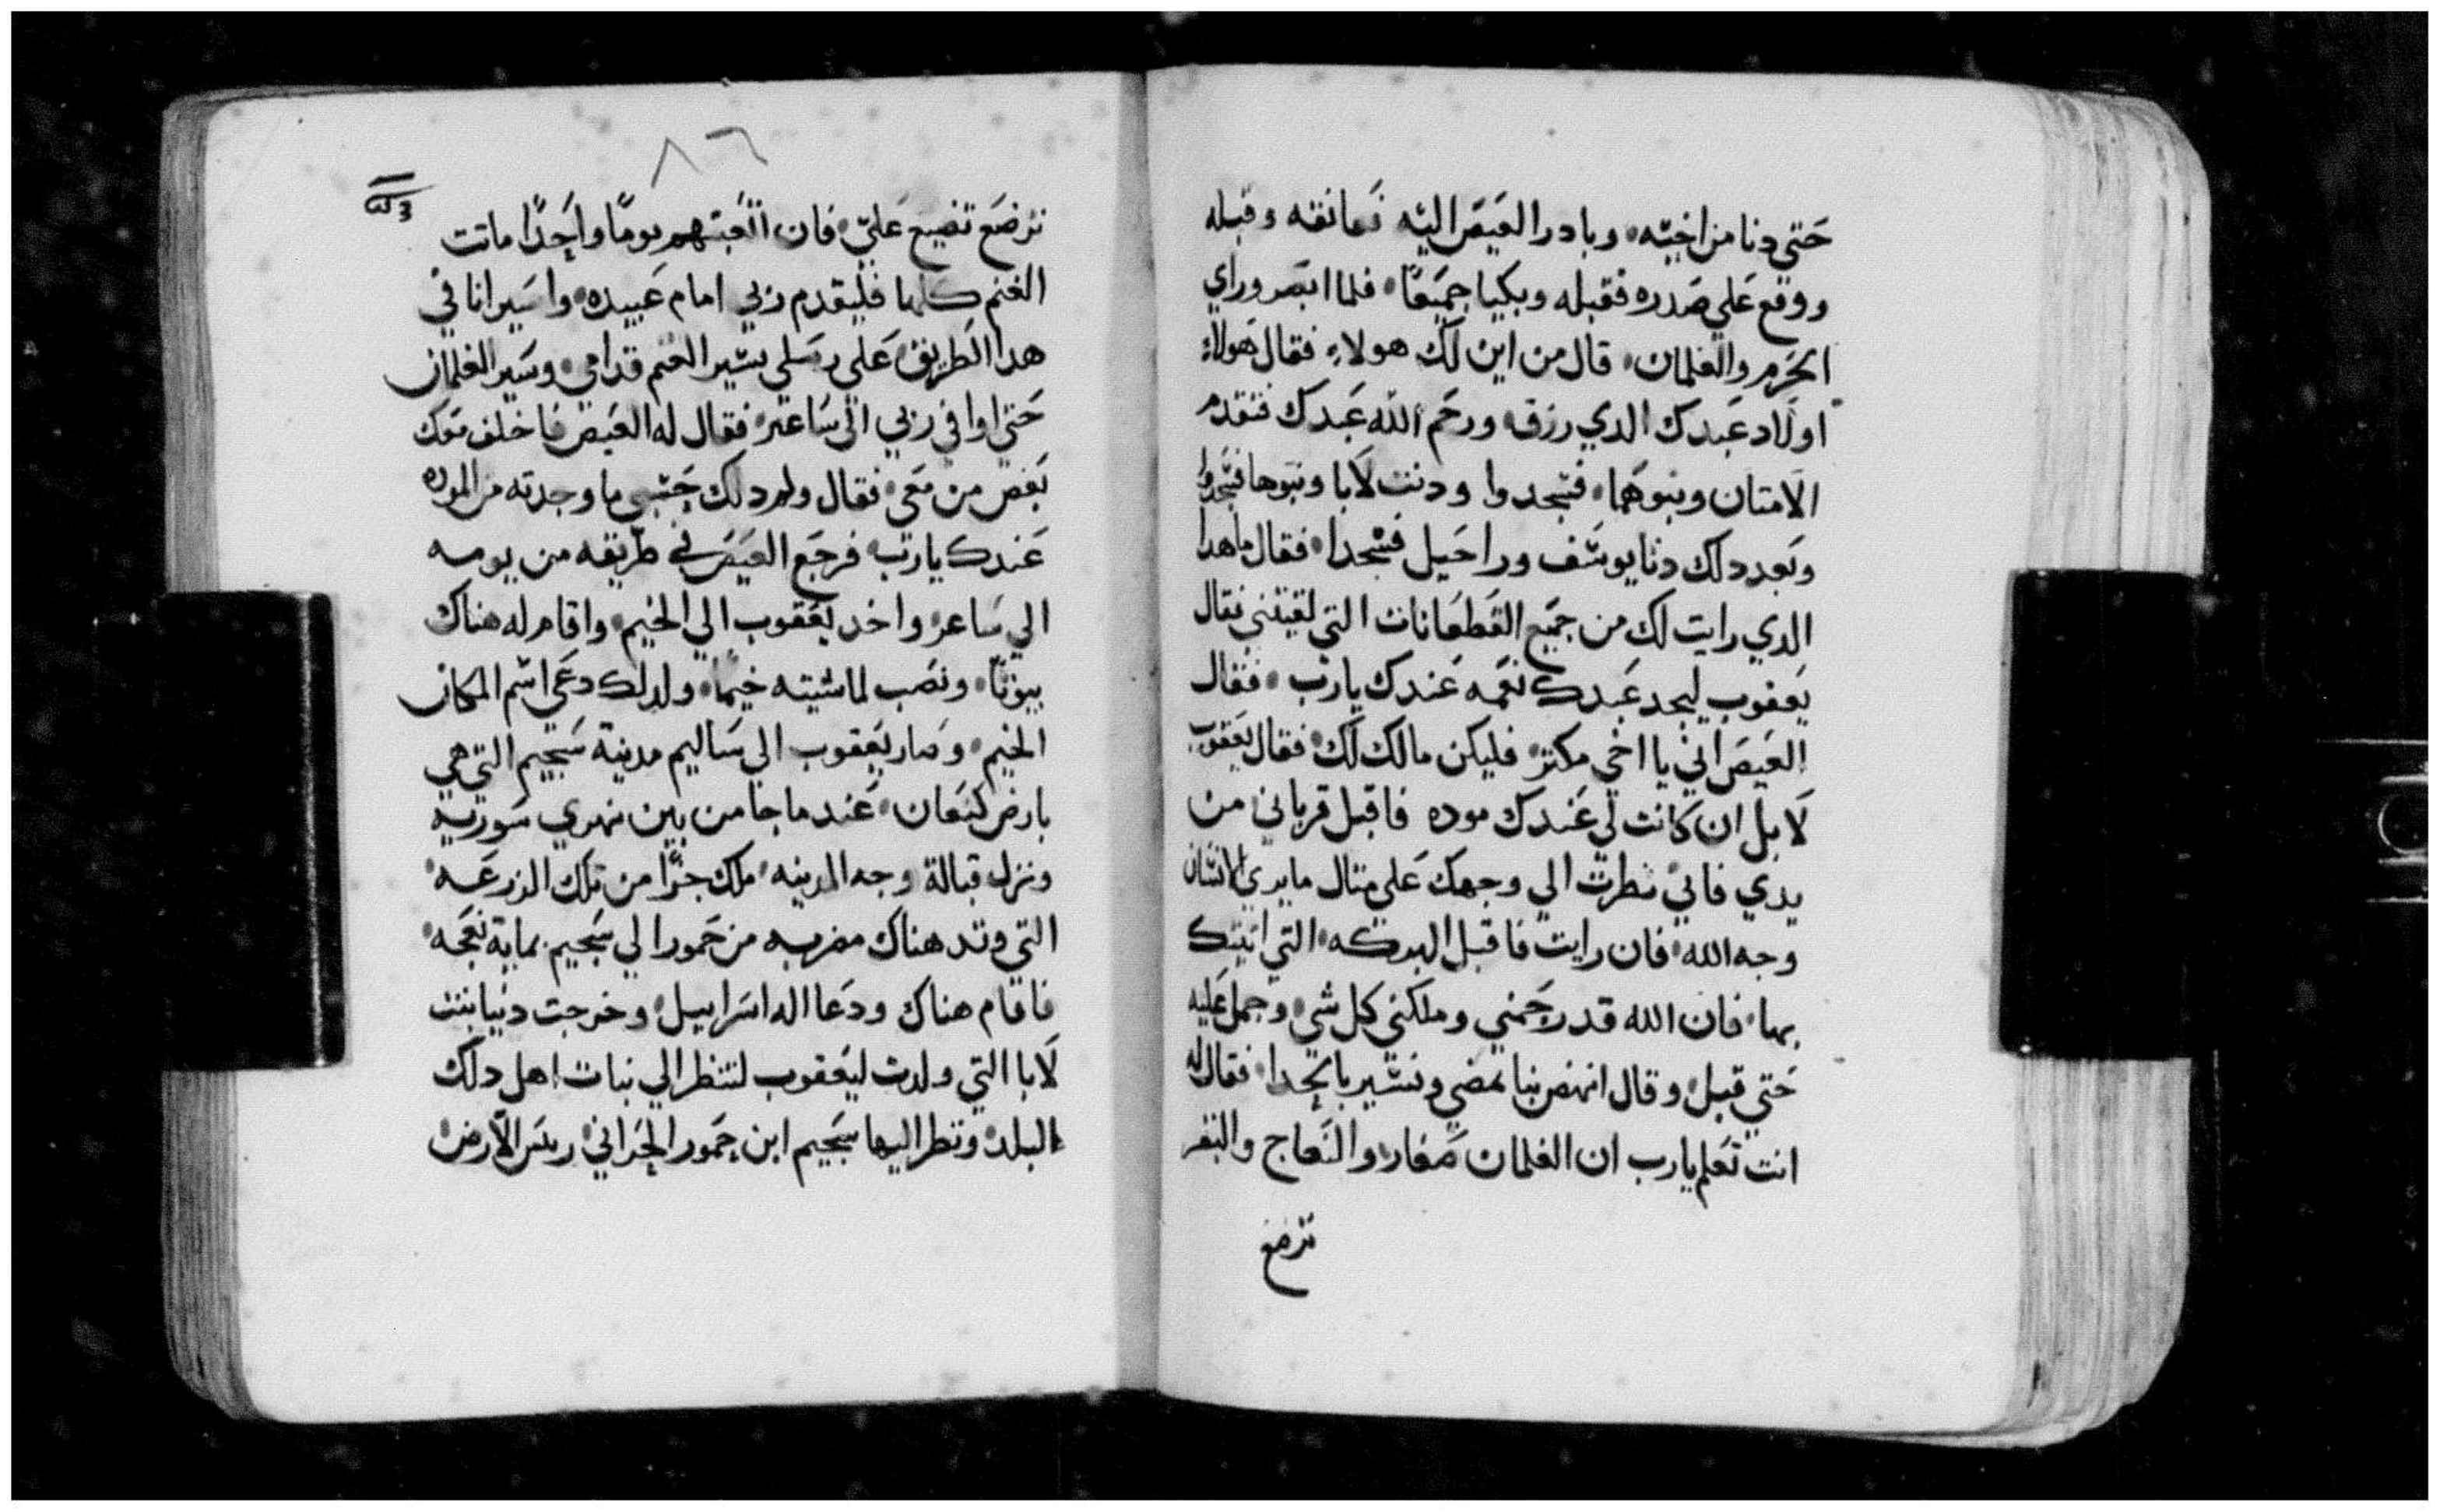 حتي دنا من اخيه وبادر العيص اليه فعانقه وقبله
ووقع علي صدره فقبله وبكيا جميعًا فلما ابصر وراي
الحرم والغلمان قال من اين لك هولاء فقال هولاء
اولاد عبدك الدي رزق ورحم الله عبدك فتقدم
الامتان وبنوهما فسجدوا ودنت لابا وبنوها فسجدوا
وبعد دلك دنا يوسف وراحيل فسجدا فقال ما هدا
الدي رايت لك من جميع القطعانات التي لقيتني فقال
يعقوب ليجد عبدك نعمه عندك يارب فقال
العيص اني يا اخي مكتر فليكن مالك لك فقال يعقوب
لا بل ان كانت لي عندك موده فاقبل قرباني من
يدي فاني نطرت الي وجهك علي متال ما يري الانسان
وجه الله فان رايت فاقبل البركه التي اتيتك
بها فان الله قد رحمني وملكني كل شي وحمل عليه
حتي قبل وقال انهض بنا نمضي ونسير باتجدا فقال له
انت تعلم يارب ان الغلمان صغار والنعاج والبقر
ترضع
٨٦
ترضع تضيع علي فان اتعبتهم يومًا واحدًا ماتت
الغنم كلها فليقدم ربي امام عبيده واسير انا في
هدا الطريق علي رسلي بسير الغنم قدامي وسير الغلمان
حتي اوافي ربي الي ساعير فقال له العيص فاخلف معك
بعض من معي فقال ولم دلك حسبي ما وجدته من الموده
عندك يارب فرجع العيص في طريقه من يومه
الي ساعر واخد يعقوب الي الخيم واقام له هناك
بيوتًا ونصب لماشيته خيمًا ولدلك دعي اسم المكان
الخيم وصار يعقوب الي ساليم مدينة سجيم التي هي
بارض كنعان عندما جا من بين نهري سوريه
ونزل قبالة وجه المدينه ملك جزًا من تلك المزرعه
التي وتد هناك مضربه من حمور ابي سجيم بماية نعجه
فاقام هناك ودعا اله اسراييل وخرجت دينا بنت
لابا التي ولدت ليعقوب لتنظر الي بنات اهل دلك
البلد ونطر اليها سجيم ابن حمور الحراني ريس الارض